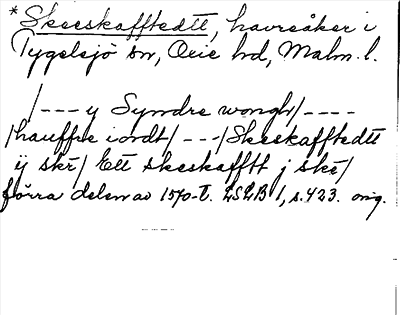 *Skeeskafftedtt, havreåker i
Tygelsjö sn, Oxie hd, Malm. l.
/---y Syndre wongh/----
/hauffre iordt/---/Skeskafftedtt
ij skē/ Ett skeskafftt j skē/
förra delen av 1570-t. LSLB 1, s. 423. orig.